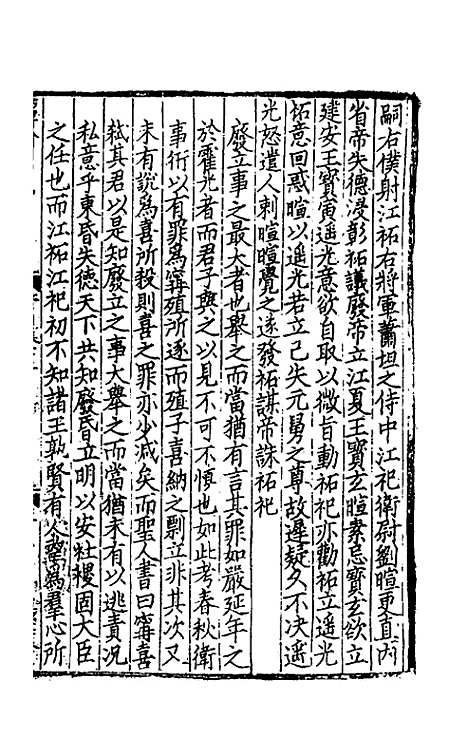 嗣右僕射江祏右將軍蕭坦之侍中江祀衛尉劉暄更直內
省帝失德浸彰祏議廢帝立江夏王寳玄暄素忌寳玄欲立
建安王寳寅遥光意欲自取以微旨動祏祀亦勸祏立遥光
祏意回惑暄以遥光若立己失元舅之尊故遲疑久不决遥
光怒遣人刺暄暄覺之遂發祏謀帝誅祏祀
廢立事之最大者也舉之而當猶有言其罪如嚴延年之
於霍光者而君子與之以見不可不慎也如此考春秋衛
事術以有罪爲甯殖所逐而殖子喜納之剽立非其次又
未有説爲喜所殺則喜之罪亦少减矣而聖人書曰甯喜
弑其君以是知廢立之事大舉之而當猶未有以逃責况
私意乎東昏失徳天下共知廢昏立明以安社稷固大臣
之任也而江祏江祀初不知諸王孰賢有人焉爲羣心所